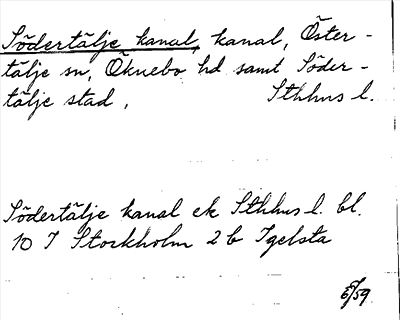 Södertälje kanal, kanal, Öster-
tälje sn, Öknebo hd samt Söder-
tälje stad, Sthlms l.
Södertälje kanal ek Sthlms l. bl.
10 I Stockholm 2 b Igelsta
/59